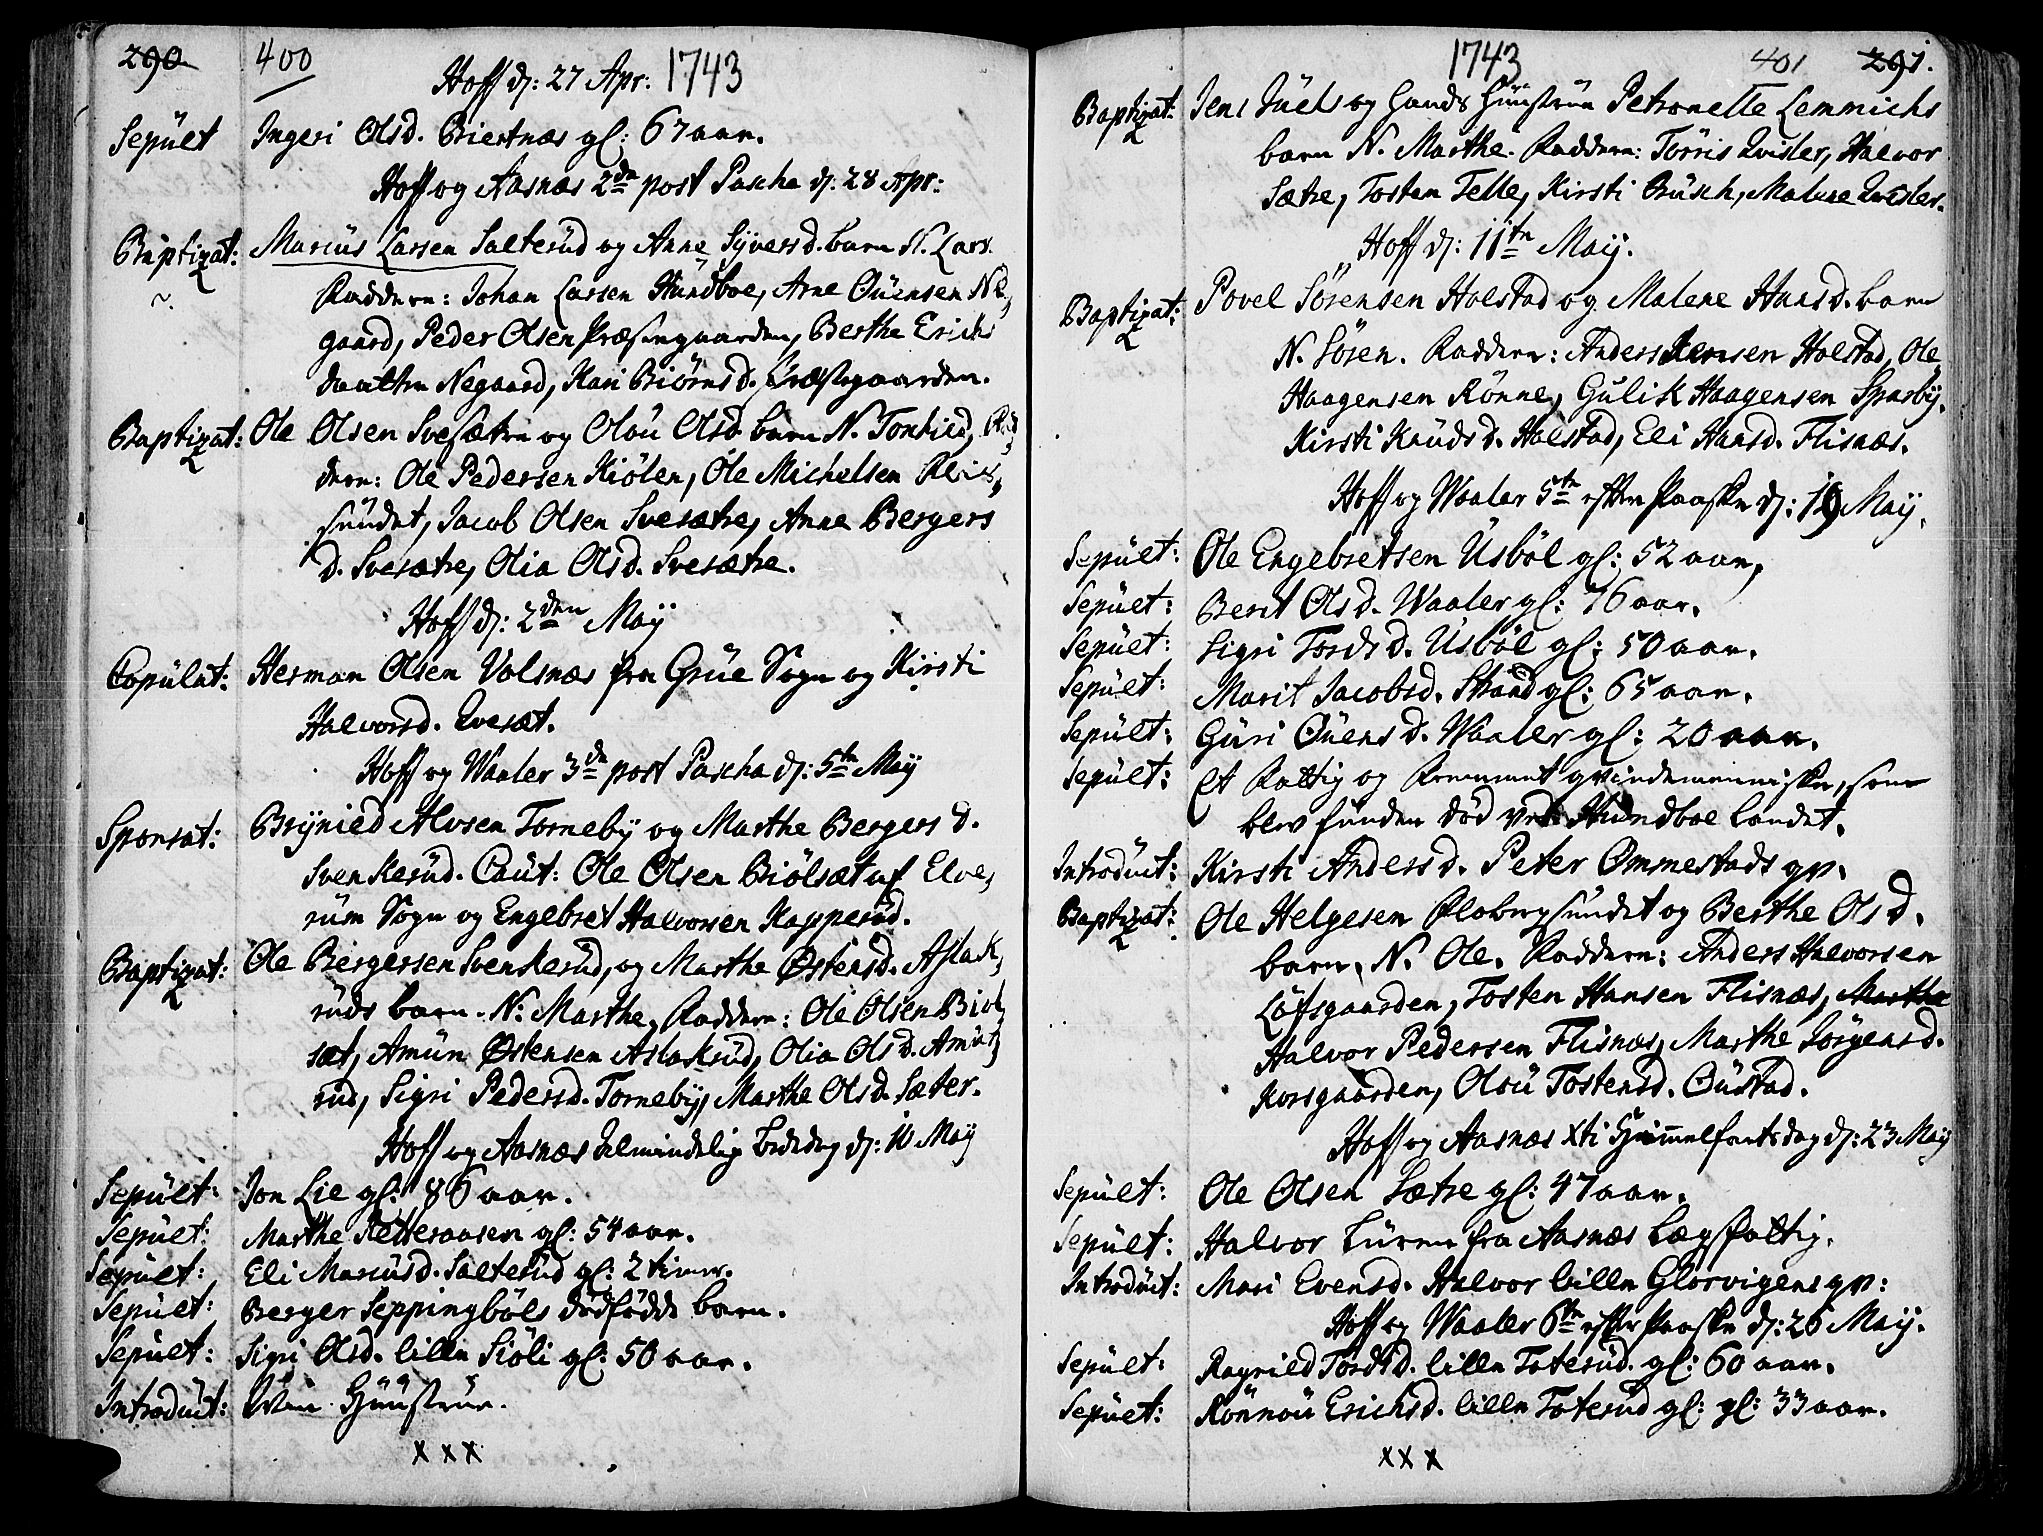 290 400
Hoff d: 27 Apr: 1743
Sepült Ingeri Olsd. Biertnæs gl: 67 aar.
Hoff og Aasnæs 2den post Pascha d: 28 Apr:
Baptizat: Marius Larsen Salterud og Anne Syversd. barn N. Lars.
Faddere: Johan Larsen Hündboe, Arne Ouensen Ne,
gaard, Peder Olsen Præstegaarden, Berthe Erichs
daatter Negaard, Kari Biörnsd. Præstegaarden.
Baptizat: Ole Olsen Svesætre og Olöu Olsd. barn N. Tontied, Fad,
dere: Ole Pedersen Kiölen, Ole Michelsen
sündet, Jacob Olsen Svesætre, Anne Bergers
d. Svesætre, Olia Olsd. Svesætre.
Hoff d: 2den May
Copülat: Herman Olsen Volsnæs fra Grüe Sogn og Kirsti
Halvorsd. Qvesæt.
Hoff og Waaler 3die post Pascha d: 5te May
Sponsat: Brynied Alvsen Torneby og Marthe Bergersd.
Svenkerüd. Caüt: Ole Olsen Biölsæt af Elve,
rüm Sogn og Engebret Halvorsen Kapperüd.
Baptizat: Ole Bergersen Svenkerüd, og Marthe Østensd. Aslak,
rüds barn. N: Marthe, Faddere: Ole Olsen Biöl,
sæt, Amün Østensen Aslakrüd, Olia Olsd. Amüt,
rüd, Sigri Pedersd. Torneby, Marthe Olsd. Sæter.
Hoff og Aasnæs Almindelig Bededag d: 10 May
Sepült: Jon Lie gl: 86 aar.
Sepült: Marthe Petteraasen gl: 54 aar.
Sepült: Eli Mariüsd. Salterüd gl: 2 timer.
Sepült: Berger Seppingböls dödfödde barn.
Sepült: Sigri Olsd. lille Siöli gl: 50 aar.
Introdüct: Min Hüüstrüe.
x x x
1743 401 291.
Baptizat: Jens Jüels og Hands Hüüstrüe Petronelle Lemmichs
barn N. Marthe. Faddere: Törris Qvisler, Halvor
Sætre, Tosten Telle, Kirsti Brüsch, Malene Qvisler.
Hoff d: 11te Maij.
Baptizat: Povel Sörensen Holstad og Malene Hansd. barn
N. Sören. Faddere: Anders Hansen Holstad, Ole
Haagensen Rönne, Gülik Haagensen Sparby,
Kirsti Knüdsd. Holstad, Eli Hansd. Flisnæs.
Hoff og Waaler 5te efter Paaske d: 19 Maij.
Sepült: Ole Engebretsen Üsböl gl: 52 aar,
Sepült: Berit Olsd. Waaler gl: 76 aar.
Sepült: Sigri Tordsd. Üsböl gl: 50 aar.
Sepült: Marit Jacobsd. Strand gl: 65 aar.
Sepült: Güri Öuensd. Waaler gl: 20 aar.
Sepült: Et Fattig og Fremmet qvindemenniske, som
blev fünden död ved Hündboe Landet.
Introdüct: Kirsti Andersd. Peter Ommestads qv.
Baptizat: Ole Helgesen Flobergsündet og Berthe Olsd.
barn, N. Ole. Faddere: Anders Halvorsen
Löfsgaarden, Tosten Hansen Flisnæs, Marthe
Halvor Pedersen Flisnæs, Marthe Jörgensd.
Korsgaarden, Oloü Tostensd. Büstad.
Hoff og Aasnæs Xti Himmelfartsdag d: 23 Maij
Sepült: Ole Olsen Sætre gl: 47 aar.
Sepült: Halvor Lüren fra Aasnæs Lægsfattig.
Introdüct: Mari Evensd. Halvor lille Glorvigens qv:
Hoff og Waaler 6te efter Paaske d: 26 Maij.
Sepült: Ragnild Tordsd. lille Toterüd. gl: 60 aar.
Sepült: Rönnoü Erichsd. lille Toterüd gl: gl: 33 aar.
x x x